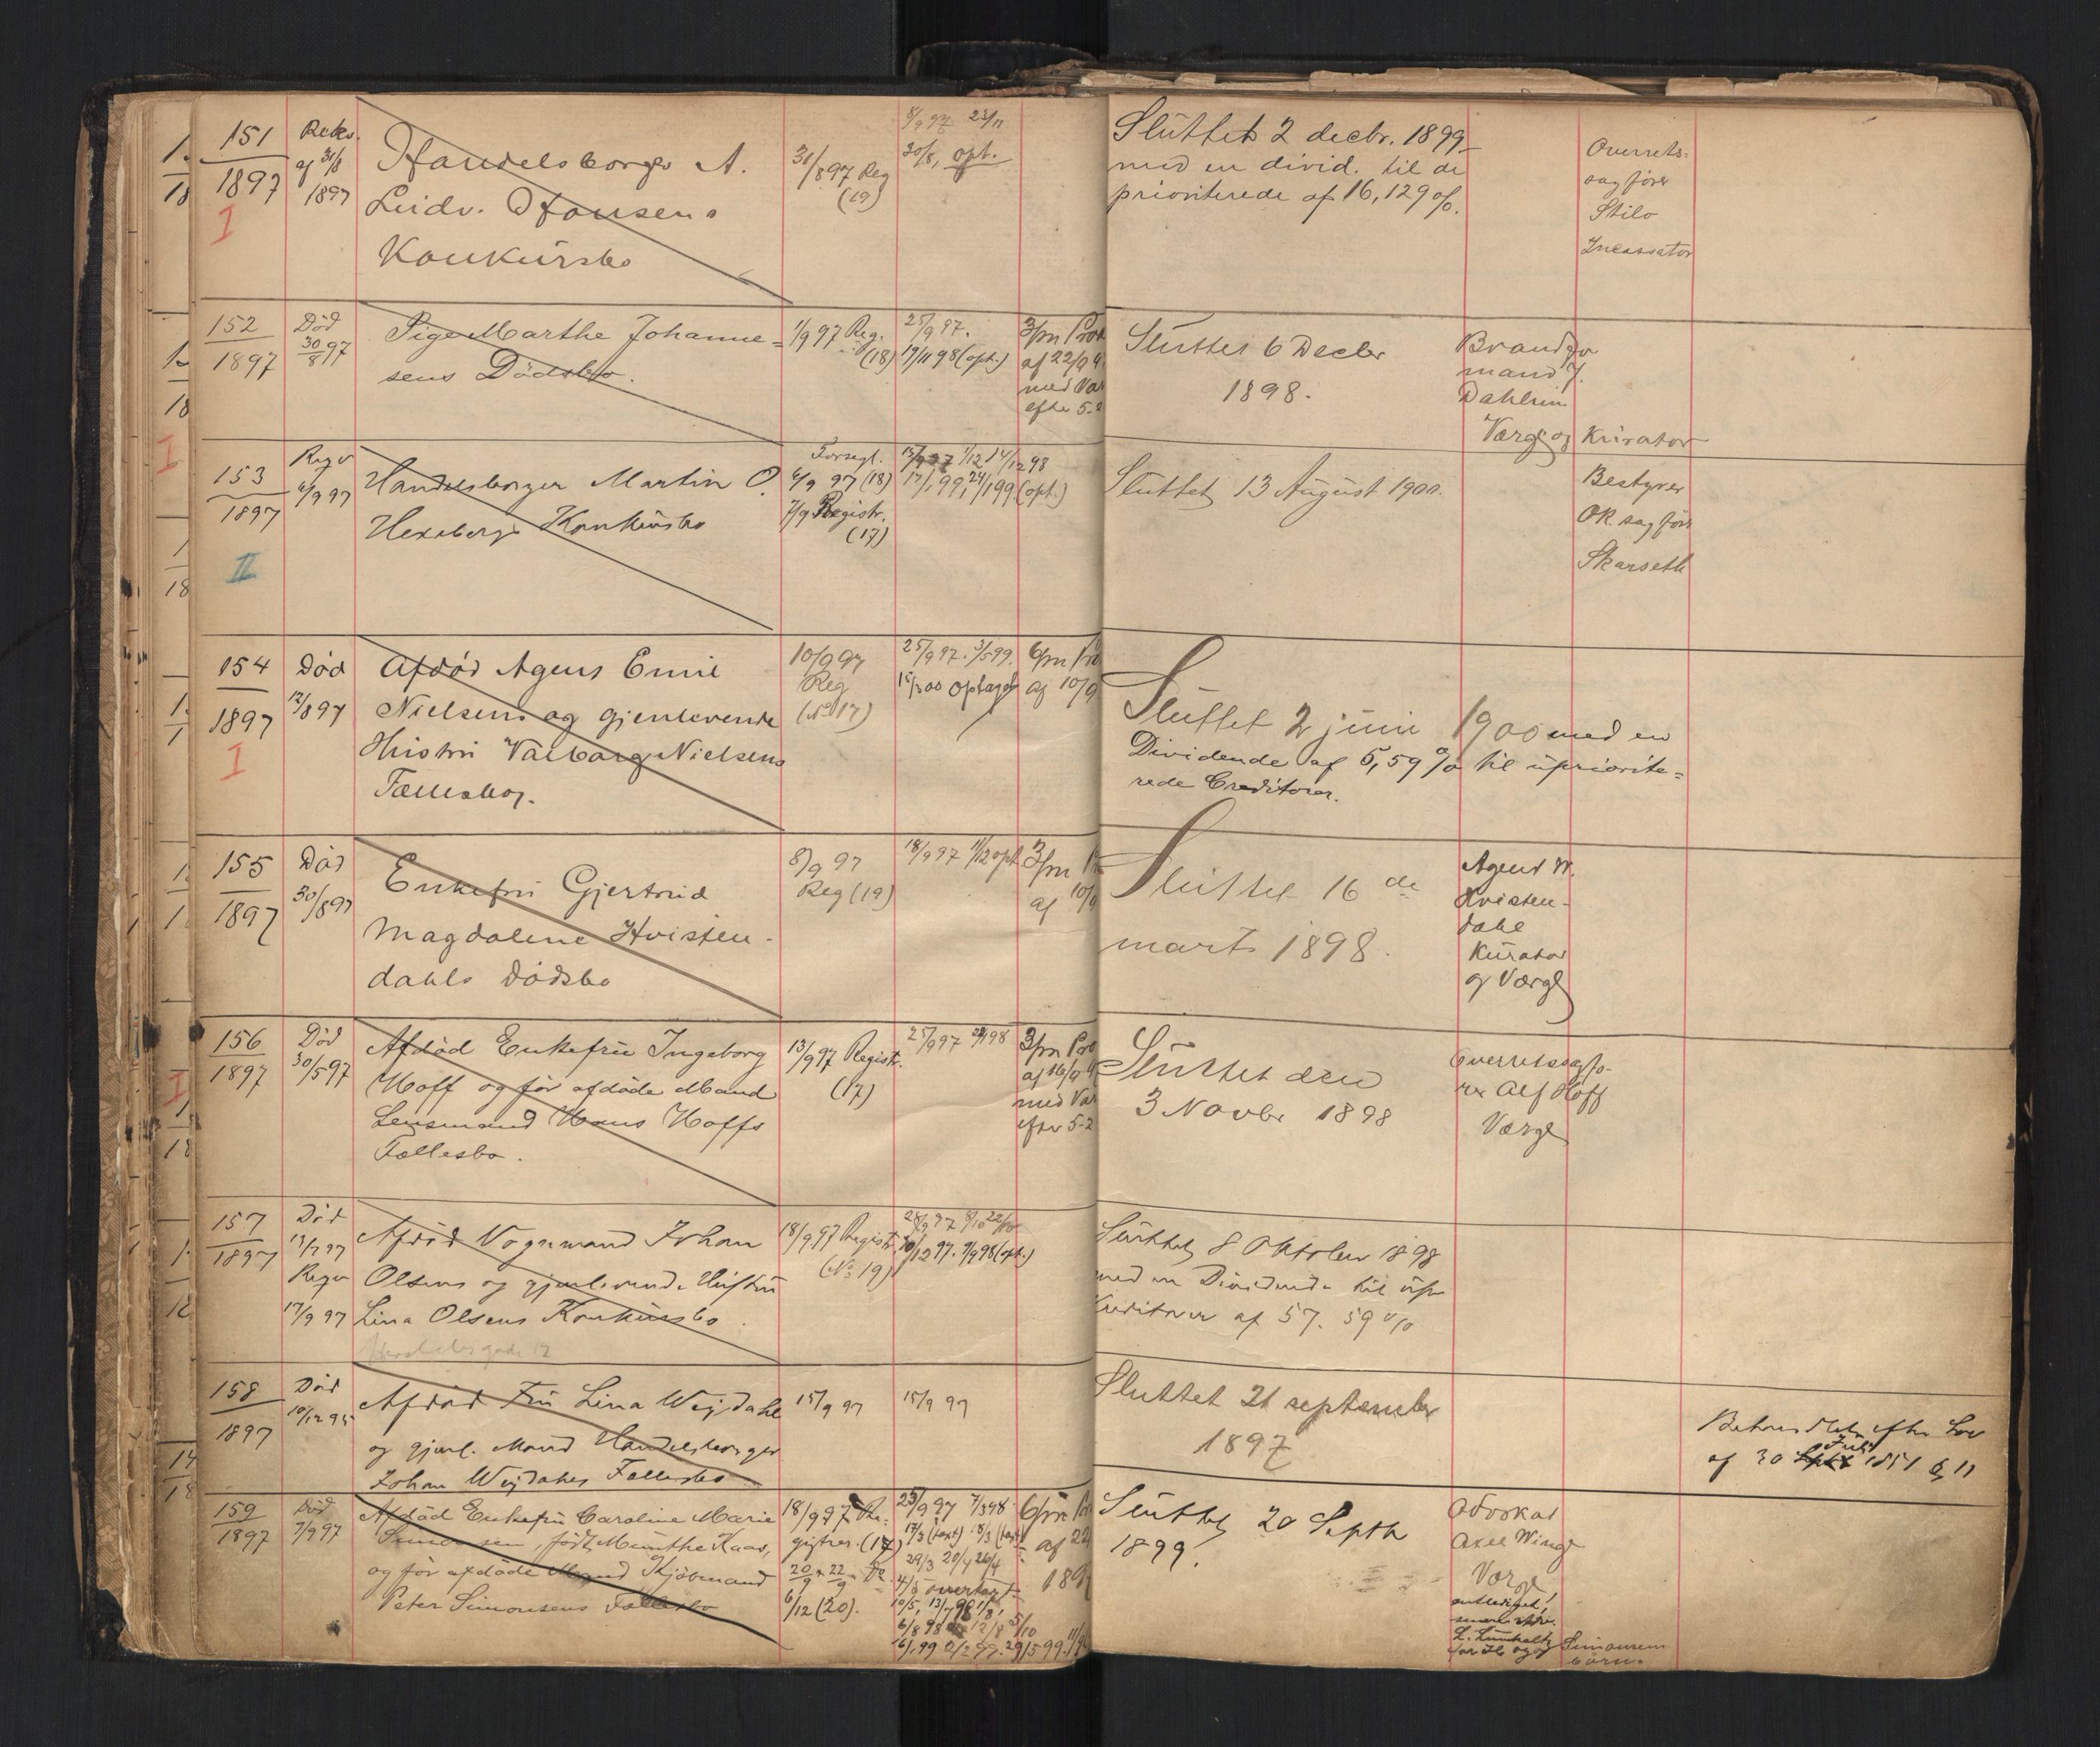 151
1897
I
Rekv.
af 31/8
1897
Handelsborger A.
Ludv. Hansens
Konkursbo
31/897 Reg
(19)
8/997 23/11
30/8, opt.
Sluttet 2 decbr. 1899
med en divid. til de
prioriterede af 16,129 o/o.
Overrets-
sagfører
Stilo
Incassator
152
1897
Død
30/8 97
Pige Marthe Johanne-
sens Dödsbo.
1/997 Reg.
(18)
25/997.
19/11 98 (opt.)
3/m Prok
af 22/9 9
med Var
efter 5-2
Sluttet 6 Decbr
1898.
Brandfor
mand J.
Dahlsen
Værge og Kurator
153
1897
II
Reqv
6/997
Handelsborger Martin O.
Hexeberg Konkursbo
Forsegl.
6/9 97 (18)
7/9 Registr.
(17)
1/12 14/1298
17/199, 24/199 (opt.)
Sluttet 13 August 1900.
Bestyrer
OR. sagfør
Skarseth
154
1897
I
Død
12/897
Afdød Agent Emil
Nielsens og gjenlevende
Hustru Valborg Nielsens
Fællesbo.
10/997
Reg
(No 17)
25/997. 3/599.
15/300 optaget
6/m Pro
af 10/9
Sluttet 2 juni 1900 med en
Dividende af 5,59 % til upriorite-
rede Creditorer.
155
1897
Død
30/897
Enkefru Gjertrud
Magdalene Hvisten-
dahls dødsbo
8/9 97
Reg (19)
18/997 11/12 opt
3/m
af 10/9
Sluttet 16 de
marts 1898.
Agent W.
Hvisten-
dahl
Kurator
og Værge
156
1897
Død
30/597
Afdöd Enkefru Ingeborg
Hoff og för afdöde Mand
Lensmand Hans Hoffs
Fællesbo.
13/997 Registr.
(17)
25/997
3/m Pro
af 16/9 9
med Var
efter 5-2
Sluttet den
3 Novbr 1898
Overretssagfø-
rer Alf Hoff
Værge
157
1897
Død
13/797
Reqv
17/997
Afdød Vognmand Johan
Olsens og gjenlevende Hustru
Lina Olsens Konkursbo.
18/997 Registr.
(No 19)
Sluttet 8 Oktober 1898
med en Dividende til upr
Kreditorer af 57.59 %
158
1897
Død
10/1295
Afdöd Fru Lina Weydahl
og gjenl. Mand Handelsborger
Johan Weydahls Fællesbo
15/9 97
15/9 97
Sluttet 21 september
1897
Behandlet efter Lov
af 30 Juli 1851 § 11
159
1897
Död
7/997
Afdöd Enkefru Caroline Marie
Simonsen, født Munthe Kaas,
og för afdöde Mand Kjöbmand
Peter Simonsens Fællesbo
18/997 Re-
gistrer. (17)
20/9 22/9
6/12 (20).
23/997 7/398
29/3 20/4 26/4
4/5 overtaget
10/5,
6/898 12/8 5/10
16/199 29/599.
6/m
af 22
189
Sluttet 20 Septbr
1899.
Advokat
Axel Winge
Værge
entlediget!
L. Lumholtz
Simonsens
børn.